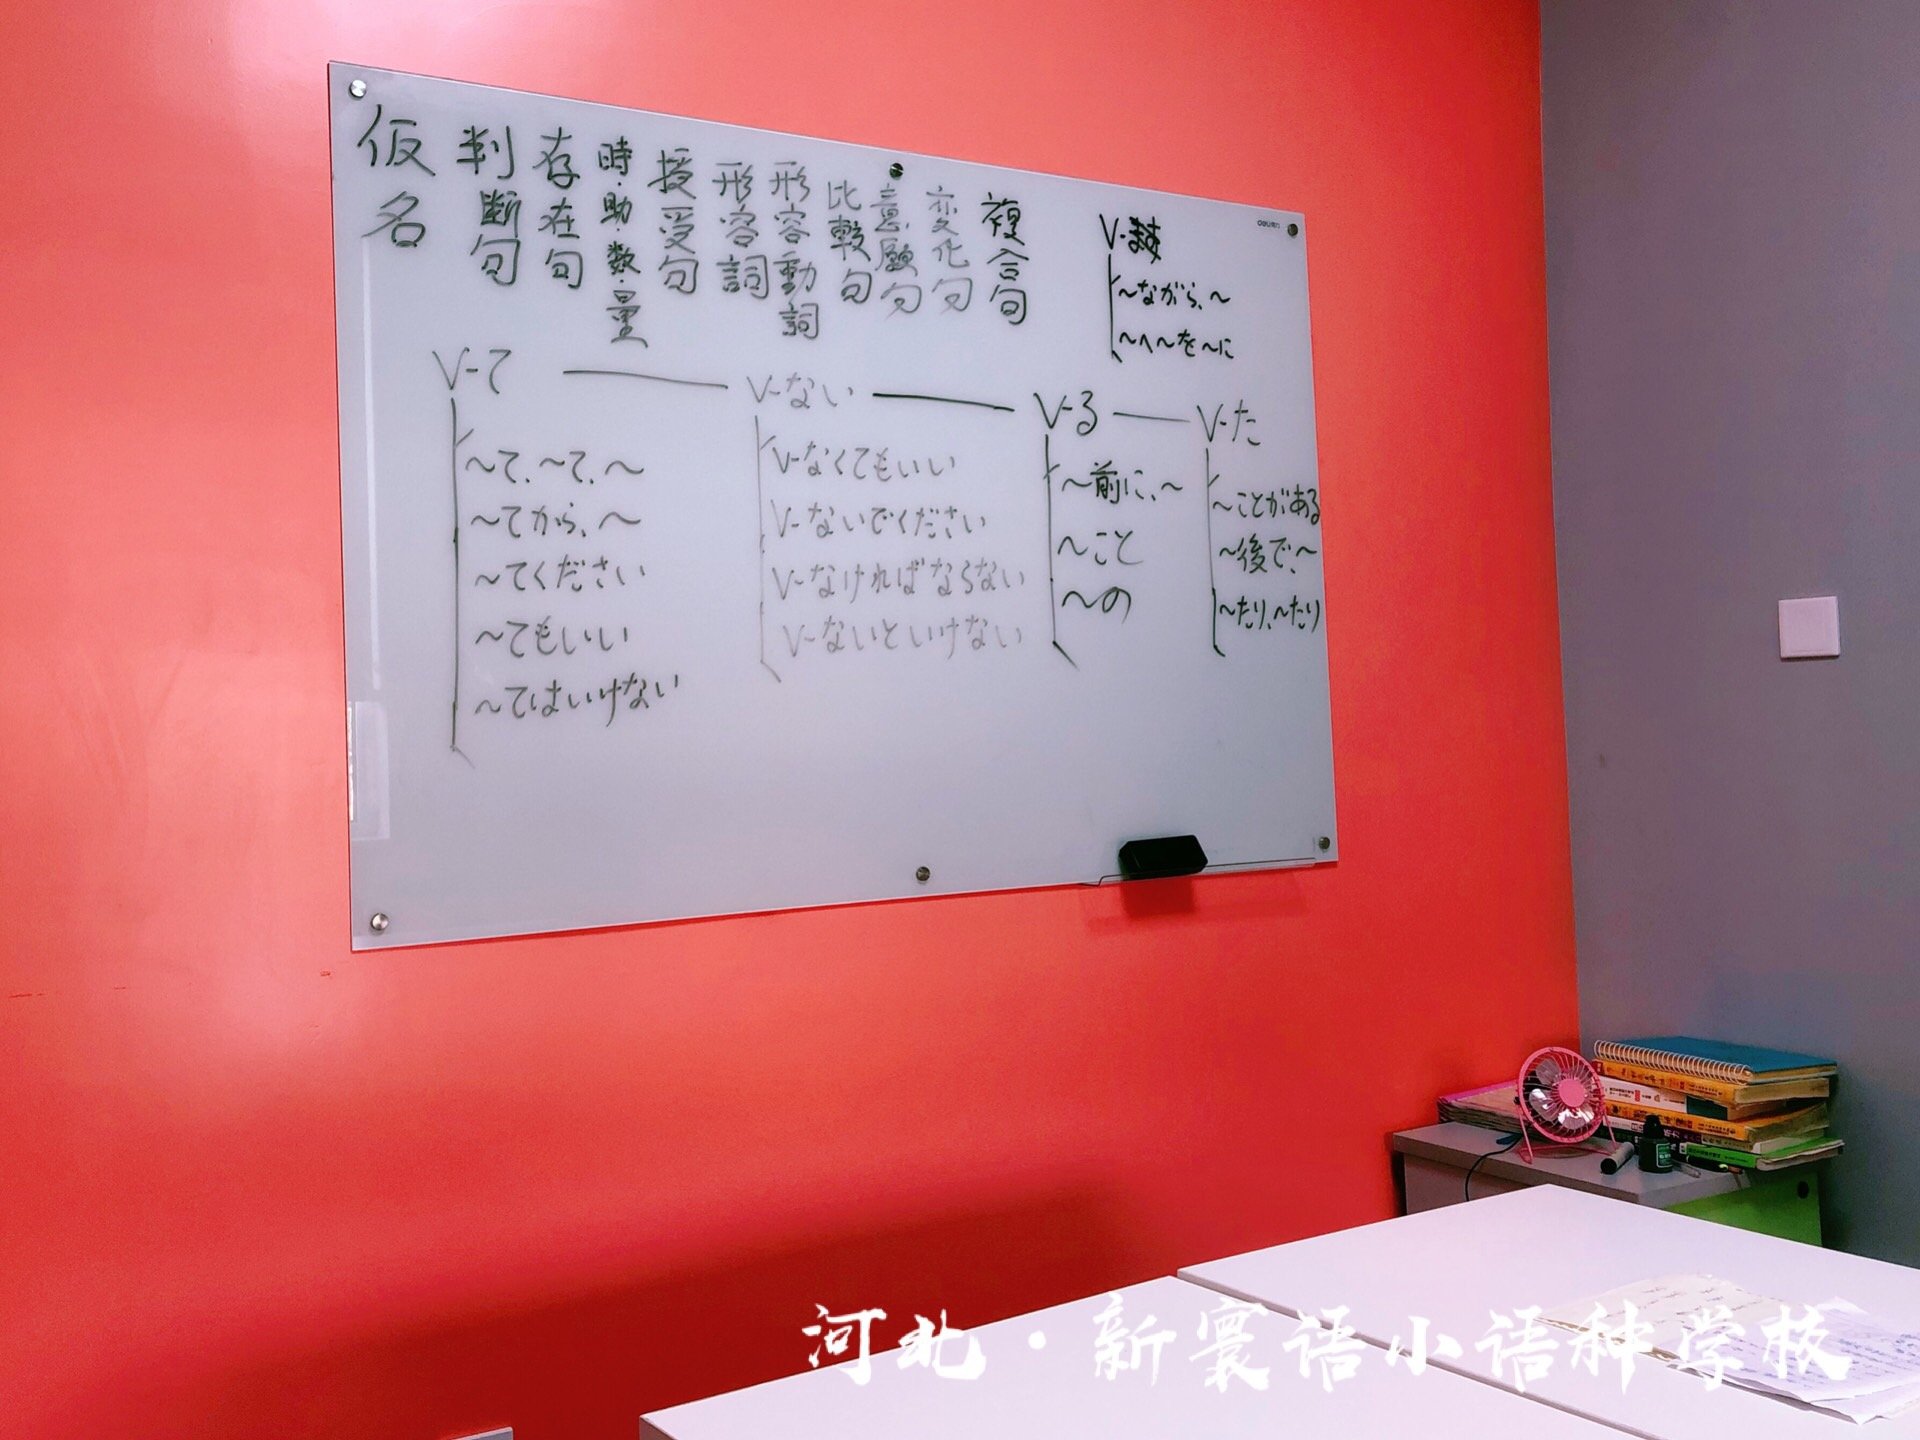 仮名
判断句
存在句
時·助·数·量
授受句
形容詞
形容動詞
比較句
意願句
変化句
複合句
V-ます
~ながら、~
~へ~を~に
V-て
~て、~て、~
~てから、~
~てください
~てもいい
~てはいけない
V-ない
V-なくてもいい
V-ないでください
V-なければならない
V-ないといけない
V-る
~前に、~
~こと
~の
V-た
~ことがある
~後で、~
~たり、~たり
deli
河北·新寰语小语种学校